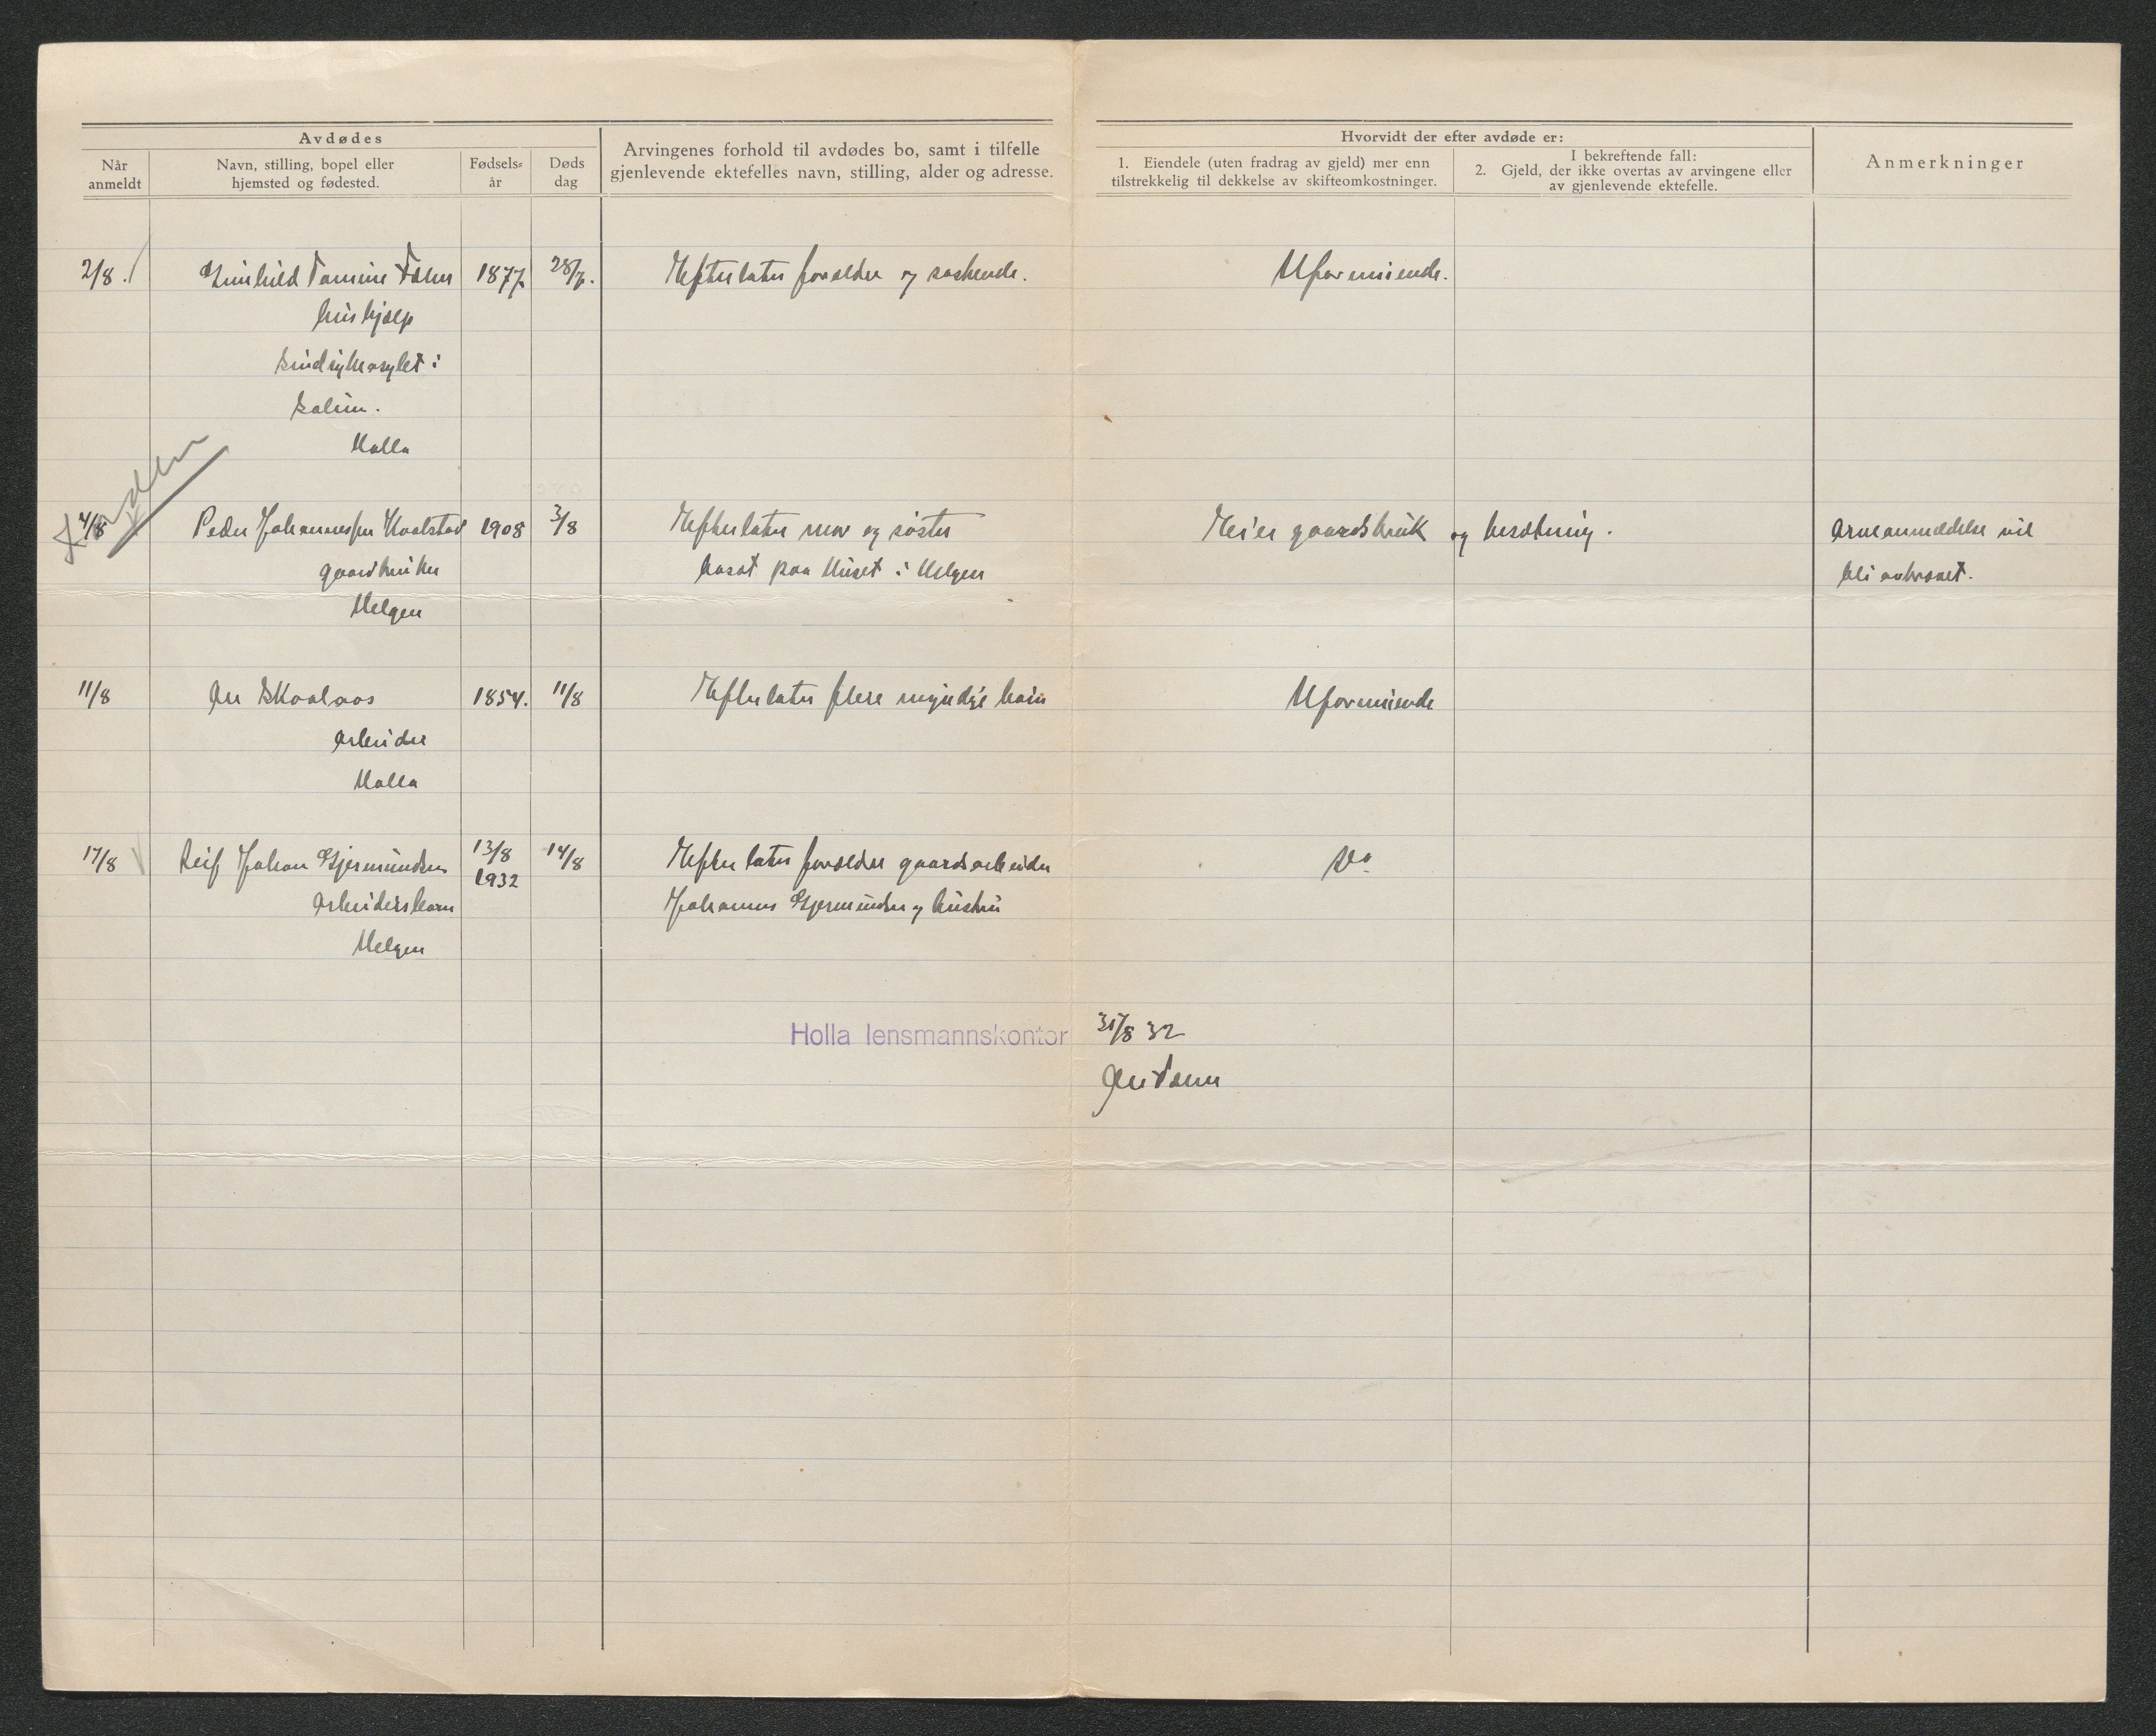 Avdødes
Når anmeldt
Navn, stilling, bopel eller hjemsted og fødested.
Fødsels-år
Døds dag
Arvingenes forhold til avdødes bo, samt i tilfelle
gjenlevende ektefelles navn, stilling, alder og adresse.
Hvorvidt der efter avdøde er:
1. Eiendele (uten fradrag av gjeld) mer enn
tilstrekkelig til dekkelse av skifteomkostninger.
I bekreftende fall:
2. Gjeld, der ikke overtas av arvingene eller
av gjenlevende ektefelle.
Anmerkninger
2/8. Gunhild Tomine 1877. 28/7. Efterlater foraeldre og søskende. Uformuende.
hushjælp
Sindsykeasylet i
Solum.
Holla
4/8 Peder Johannessen 1908 3/8 Efterlater mor og søster Eier gaardsbruk og besætning. Arveanmeldelse vil
gaardbruker bosat paa Huset i Helgen bli avkrævet.
Helgen
11/8 Ole Skoalaas 1854. 11/8 Efterlater flere myndige barn Uformuende
Arbeider
Holla
17/8 Leif Johan Gjermundsen 13/8 14/8 Efterlater foraeldre gaardsarbeider Do
1932
Arbeidersbarn Johannes Gjermundsen og hustru
Helgen
Holla lensmannskontor 31/8 32